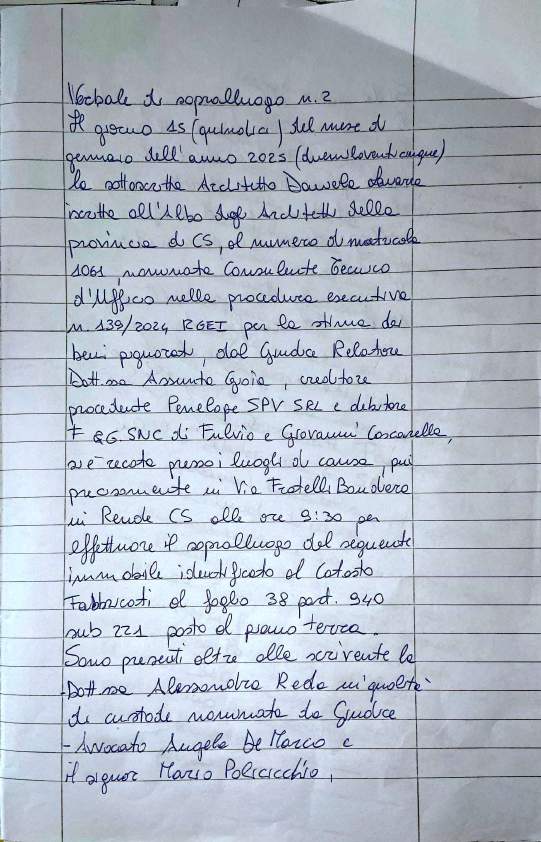 Verbale di sopralluogo n. 2
Il giorno 15 (quindici) del mese di
gennaio dell'anno 2025 (duemilaventicinque)
la sottoscritta Architetto Daniela
iscritta all'Albo degli Architetti della
provincia di CS, al numero di matricola
1061, nominata Consulente Tecnico
d'Ufficio nella procedura esecutiva
n. 139/2024 RGEI per la stima dei
beni pignorati, dal Giudice Relatore
Dott.ssa Assunta Gioia, creditore
procedente Penelope SPV SRL e debitore
F &G. SNC di Fulvio e Giovanni Coscarella,
si è recata presso i luoghi di causa, più
precisamente in Via Fratelli Bandiera
in Rende CS alle ore 9:30 per
effettuare il sopralluogo del seguente
immobile identificato al Catasto
Fabbricati al foglio 38 part. 940
sub 221 posto al piano terra.
Sono presenti oltre alla scrivente la
-Dott.ssa Alessandra Reda in qualità
di custode nominata da Giudice
- Avvocato Angela De Marco e
il signor Mario Policicchio,